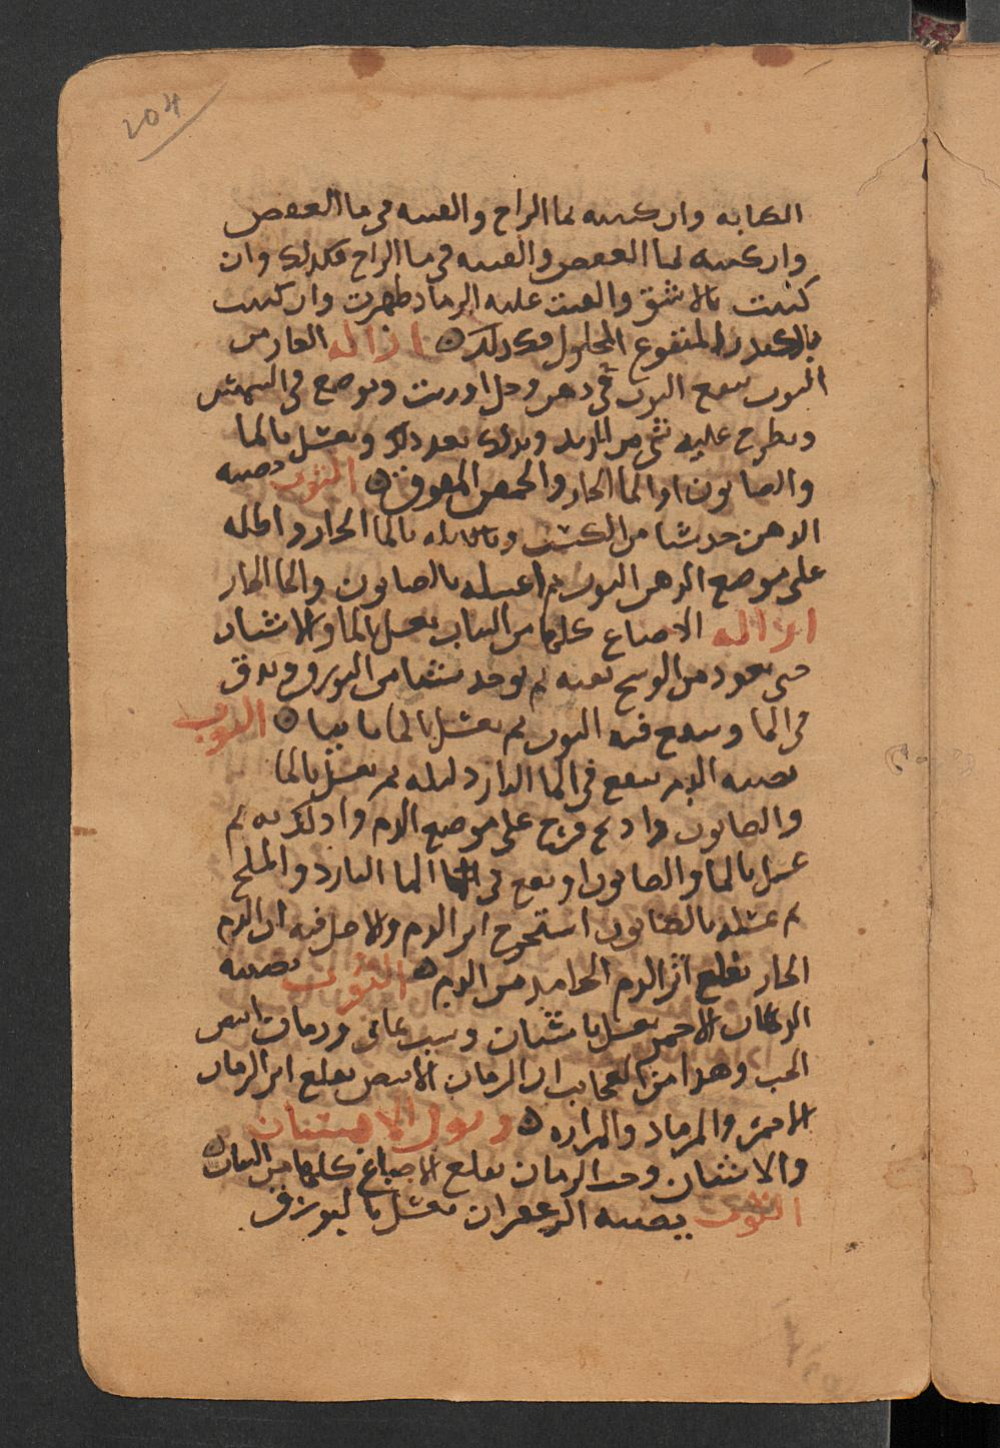 204
الكتابه وان كتبته بما الزاج والقيته في ما العفص
وان كتبته بما العفص والقيته في ما الزاج فكذلك وان
كتبت بالاشق والقيت عليه الرماد ظهرت وان كتبت
بالكندر المنقوع المحلول فكذلك ازاله القار من
الثوب ينقع الثوب في دهن وخل او زيت ويوضع في الشمس
ويطرح عليه شي من الزبد ويدلك بعد ذلك ويغسل بالما
والصابون او بالما الحار والحمص المدقوق الثوب يصيبه
الدهن خذ شيا من الكثيرا بالما الحار واطله
على موضع الدهن من الثوب ثم اغسله بالصابون والما الحار
ازاله الاصباغ كلها من الثياب يغسل بالما والاشنان
حتى يعود من الوسخ نقيه ثم يوخذ شيا من البورق ويدق
في الما وينقع فيه الثوب ثم يغسل بالما الثوب
يصيبه الدم ينقع في الما البارد ليله ثم يغسل بالما
والصابون وان ذبح فرخ على موضع الدم وادلكه به ثم
غسل بالما والصابون او نقع في الما البارد والملح
ثم غسله بالصابون استخرج اثر الدم والاصل فيه ان الدم
الحار يقلع اثر الدم الجامد من الدم الثوب يصيبه
الرمان الاحمر يغسل باشنان وشب يماني ورمان ابيض
الحب وهذا من العجايب ان الرمان الابيض يقلع اثر الرمان
الاحمر والرماد والمراره وبول الانسان
والاشنان وحب الرمان يقلع الاصباغ كلها من الثياب
الثوب يصيبه الزعفران يغسل بالبورق